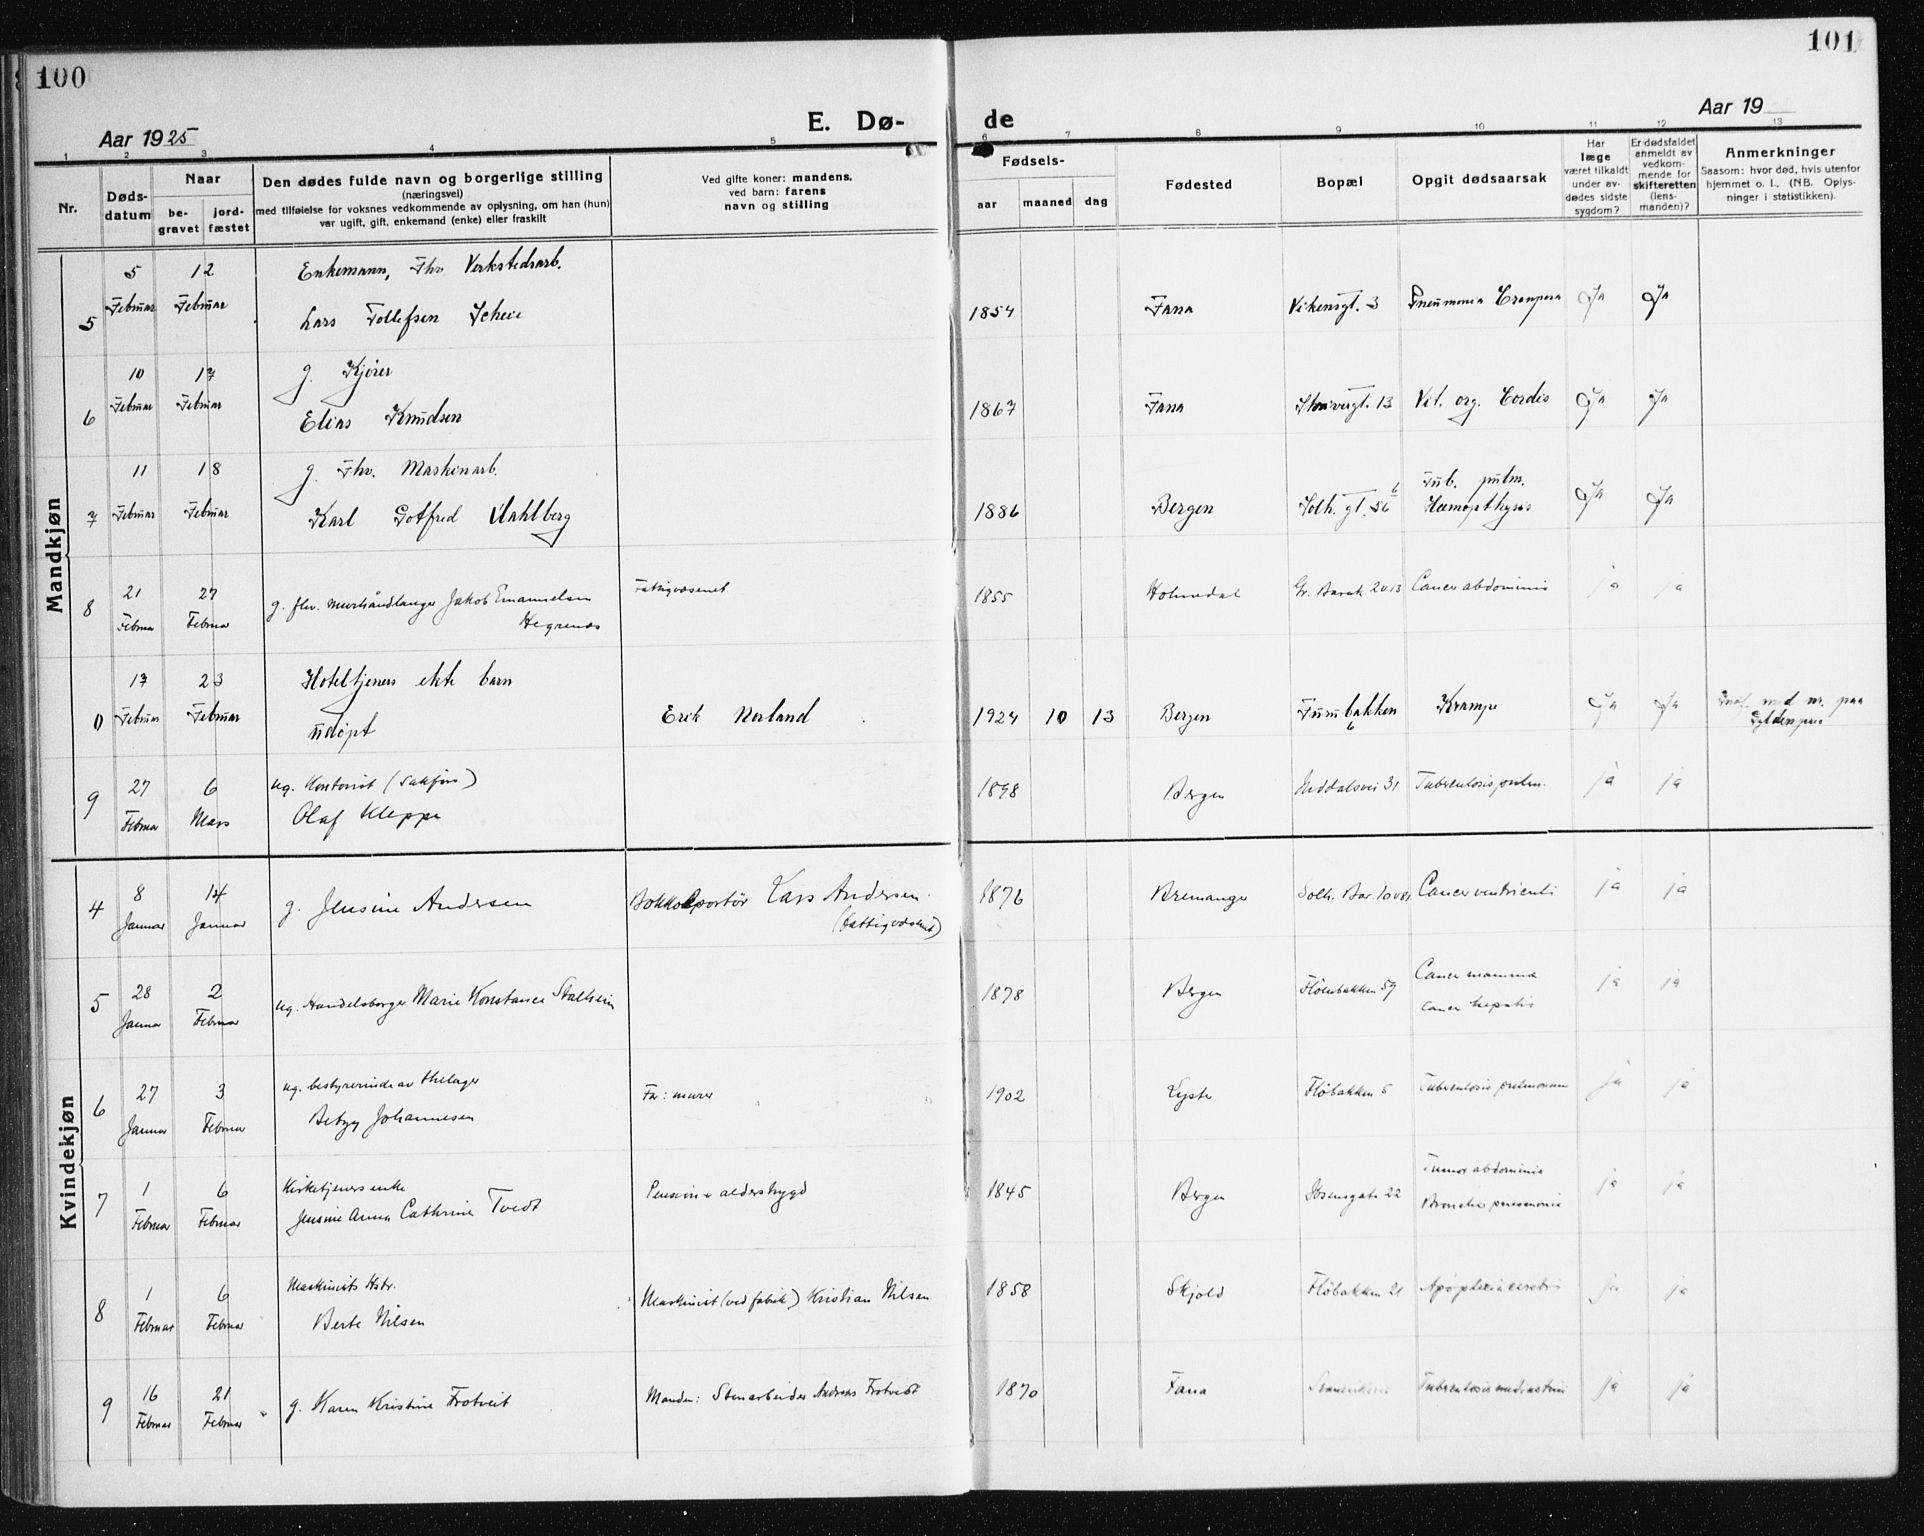 100
101
Aar 1925
E. Dø-
de
Aar 19
1 2 3 4 5 6 7 8 9 10 11 12 13
Nr.
Døds-
datum
Naar
be-
gravet
jord-
fæstet
Den dødes fulde navn og borgerlige stilling
(næringsvei)
med tilføielse for voksnes vedkommende av oplysning, om han (hun)
var ugift, gift, enkemand (enke) eller fraskilt
Ved gifte koner: mandens,
ved barn: farens
navn og stilling
Fødsels-
aar maaned dag
Fødested
Bopæl
Opgit dødsaarsak
Har
læge
været tilkaldt
under av-
dødes sidste
sygdom?
Er dødsfaldet
anmeldt av
vedkom-
mende for
skifteretten
(lens-
manden)?
Anmerkninger
Saasom: hvor død, hvis utenfor
hjemmet o. l. (NB. Oplys-
ninger i statistikken).
Mandkjøn
5 5 Februar 12 Februar Enkemann, Fhv Verkstedsarb.
Lars Tollefsen Scheie 1854 Fana Vikensgt. 3 Pneumonia Crouposa Ja Ja
6 10 Februar 17 Februar g. Kjører
Elias Knudsen 1867 Fana 13 Vit. org. Cordis Ja Ja
7 11 Februar 18 Februar g. Fhv. Maskinarb.
Karl Gotfred Dahlberg 1886 Bergen Solh. gt. 56 6 Tub. pulm.
Hæmopthysis Ja Ja
8 21 Februar 27 Februar g. fhv. murhåndlanger Jakob Emanuelsen
Hegrenæs Fattigvæsenet 1855 Holmedal Gr. Barak 20 13 Cancer abdominis ja ja
0 17 Februar 23 Februar Hoteltjeners ekte barn
udøpt Erik Norland 1924 10 13 Bergen bakken 6 Krampe Ja Ja med nr. paa
Gyldenpris
9 27 Februar 6 Mars ug. Kontorist (Sakfører)
Olaf Kleppe 1898 Bergen 31 Tuberculosis pulm. ja ja
Kvindekjøn
4 8 Januar 14 Januar g. Jensine Andersen Bokkolportør Lars Andersen
(fattigvæsenet) 1876 Bremanger Solh. Bar. Cancer ventriculi ja ja
5 28 Januar 2 Februar ug. Handelsborger Marie Konstance Stalheim 1878 Bergen Fløenbakken 59 Cancer mamma
cancer hepatis ja ja
6 27 Januar 3 Februar ug. bestyrerinde av thelager
Betzy Johannesen Far: murer 1902 Lyster Fløbakken 5 Tuberculosis pulmonum ja ja
7 1 Februar 6 Februar Kirketjeners enke
Jensine Anna Cathrine Tvedt Pension + alderstrygd 1845 Bergen Ibsensgate 22 Tumor abdominis
Broncho pneumonia ja ja
8 1 Februar 6 Februar Maskinists Hstr.
Berte Nilsen Maskinist (ved fabrik) Kristian Nilsen 1858 Skjold Fløbakken 21 Apoplexia cerebri ja ja
9 16 Februar 21 Februar g. Karen Kristine Trotveit Manden: Stenarbeider Andreas Trotveit 1870 Fana Tuberculosis ja ja